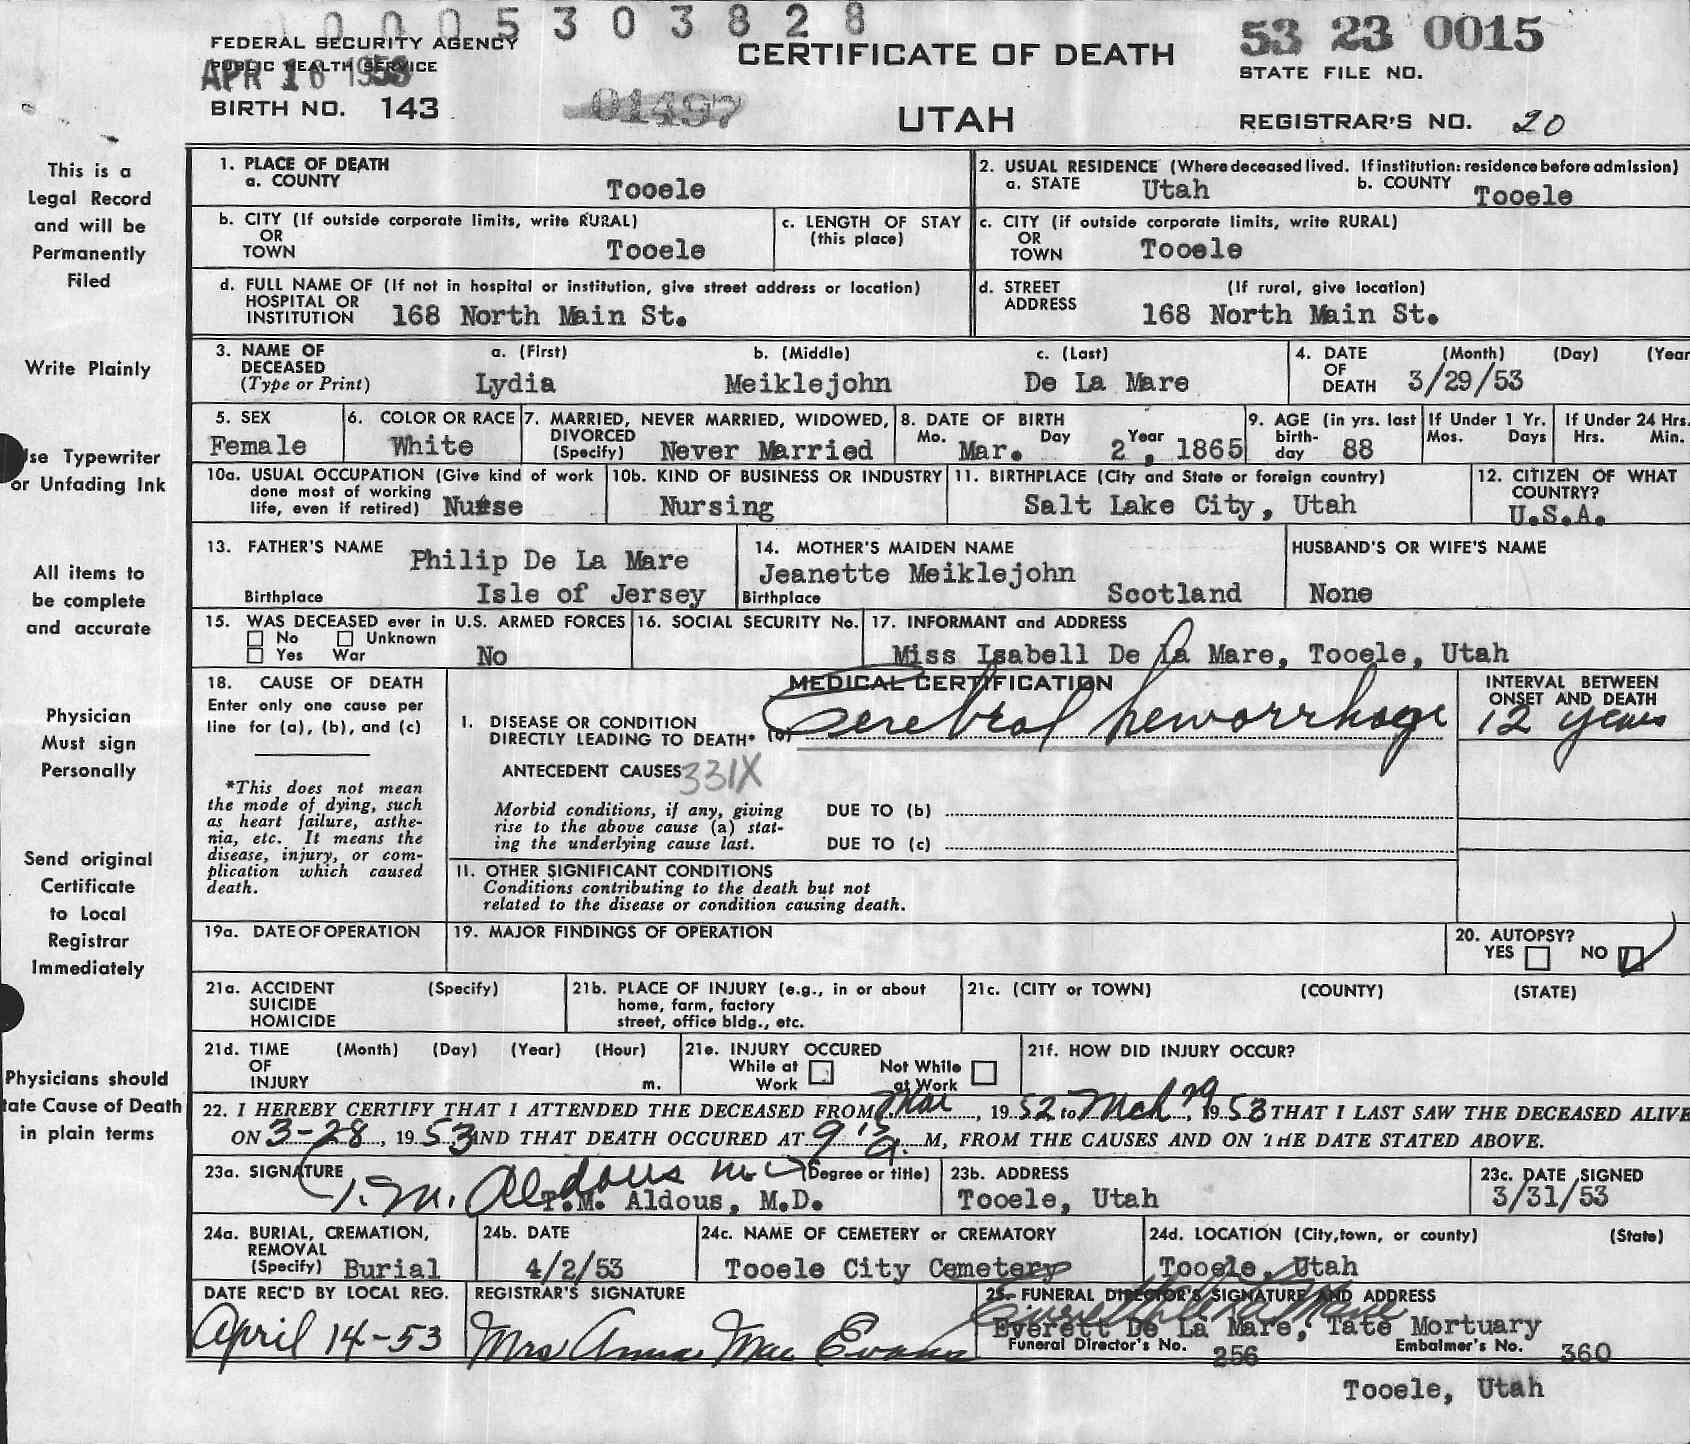 0005303828
FEDERAL SECURITY AGENCY
PUBLIC HEALTH SERVICE
APR 16 1953
BIRTH NO. 143
01497
CERTIFICATE OF DEATH
UTAH
53 23 0015
STATE FILE NO.
REGISTRAR'S NO. 20
This is a
Legal Record
and will be
Permanently
Filed
Write Plainly
se Typewriter
or Unfading Ink
All items to
be complete
and accurate
Physician
Must sign
Personally
Send original
Certificate
to Local
Registrar
Immediately
Physicians should
tate Cause of Death
in plain terms
1. PLACE OF DEATH
a. COUNTY Tooele
2. USUAL RESIDENCE (Where deceased lived. If institution: residence before admission)
a. STATE Utah b. COUNTY Tooele
b. CITY (If outside corporate limits, write RURAL)
OR
TOWN Tooele
c. LENGTH OF STAY
(this place)
c. CITY (if outside corporate limits, write RURAL)
OR
TOWN Tooele
d. FULL NAME OF (If not in hospital or institution, give street address or location)
HOSPITAL OR
INSTITUTION 168 North Main St.
d. STREET (If rural, give location)
ADDRESS
168 North Main St.
3. NAME OF a. (First) b. (Middle) c. (Last)
DECEASED
(Type or Print) Lydia Meiklejohn De La Mare
4. DATE (Month) (Day) (Year
OF
DEATH 3/29/53
5. SEX
Female
6. COLOR OR RACE
White
7. MARRIED, NEVER MARRIED, WIDOWED,
DIVORCED
(Specify) Never Married
8. DATE OF BIRTH
Mo. Day Year
Mar. 2, 1865
9. AGE (in yrs. last
birth-
day 88
If Under 1 Yr.
Mos. Days
If Under 24 Hrs.
Hrs. Min.
10a. USUAL OCCUPATION (Give kind of work
done most of working
life, even if retired) Nurse
10b. KIND OF BUSINESS OR INDUSTRY
Nursing
11. BIRTHPLACE (City and State or foreign country)
Salt Lake City, Utah
12. CITIZEN OF WHAT
COUNTRY?
U.S.A.
13. FATHER'S NAME Philip De La Mare
Birthplace Isle of Jersey
14. MOTHER'S MAIDEN NAME
Jeanette Meiklejohn
Birthplace Scotland
HUSBAND'S OR WIFE'S NAME
None
15. WAS DECEASED ever in U.S. ARMED FORCES
No Unknown
Yes War No
16. SOCIAL SECURITY No.
17. INFORMANT and ADDRESS
Miss Isabell De La Mare, Tooele, Utah
18. CAUSE OF DEATH
Enter only one cause per
line for (a), (b), and (c)
*This does not mean
the mode of dying, such
as heart failure, asthe-
nia, etc. It means the
disease, injury, or com-
plication which caused
death.
MEDICAL CERTIFICATION
I. DISEASE OR CONDITION
DIRECTLY LEADING TO DEATH* (a) Cerebral hemorrhage
INTERVAL BETWEEN
ONSET AND DEATH
12 years
ANTECEDENT CAUSES 331X
Morbid conditions, if any, giving
rise to the above cause (a) stat-
ing the underlying cause last.
DUE TO (b)
DUE TO (c)
II. OTHER SIGNIFICANT CONDITIONS
Conditions contributing to the death but not
related to the disease or condition causing death.
19a. DATE OF OPERATION
19. MAJOR FINDINGS OF OPERATION
20. AUTOPSY?
YES NO
21a. ACCIDENT (Specify)
SUICIDE
HOMICIDE
21b. PLACE OF INJURY (e.g., in or about
home, farm, factory
street, office bldg., etc.
21c. (CITY or TOWN) (COUNTY) (STATE)
21d. TIME (Month) (Day) (Year) (Hour)
OF
INJURY m.
21e. INJURY OCCURED
While at Work Not While at Work
21f. HOW DID INJURY OCCUR?
22. I HEREBY CERTIFY THAT I ATTENDED THE DECEASED FROM Mar, 1952 to Mch 29 1953 THAT I LAST SAW THE DECEASED ALIVE
ON 3-28, 1953 AND THAT DEATH OCCURED AT 9 a. M, FROM THE CAUSES AND ON THE DATE STATED ABOVE.
23a. SIGNATURE T.M. Aldous (Degree or title)
T.M. Aldous, M.D.
23b. ADDRESS
Tooele, Utah
23c. DATE SIGNED
3/31/53
24a. BURIAL, CREMATION,
REMOVAL
(Specify) Burial
24b. DATE
4/2/53
24c. NAME OF CEMETERY or CREMATORY
Tooele City Cemetery
24d. LOCATION (City, town, or county) (State)
Tooele, Utah
DATE REC'D BY LOCAL REG.
April 14-53
REGISTRAR'S SIGNATURE
Mrs Anna Mae Evans
25. FUNERAL DIRECTOR'S SIGNATURE AND ADDRESS
Everett De La Mare
Everett De La Mare, Tate Mortuary
Funeral Director's No. 256 Embalmer's No. 360
Tooele, Utah